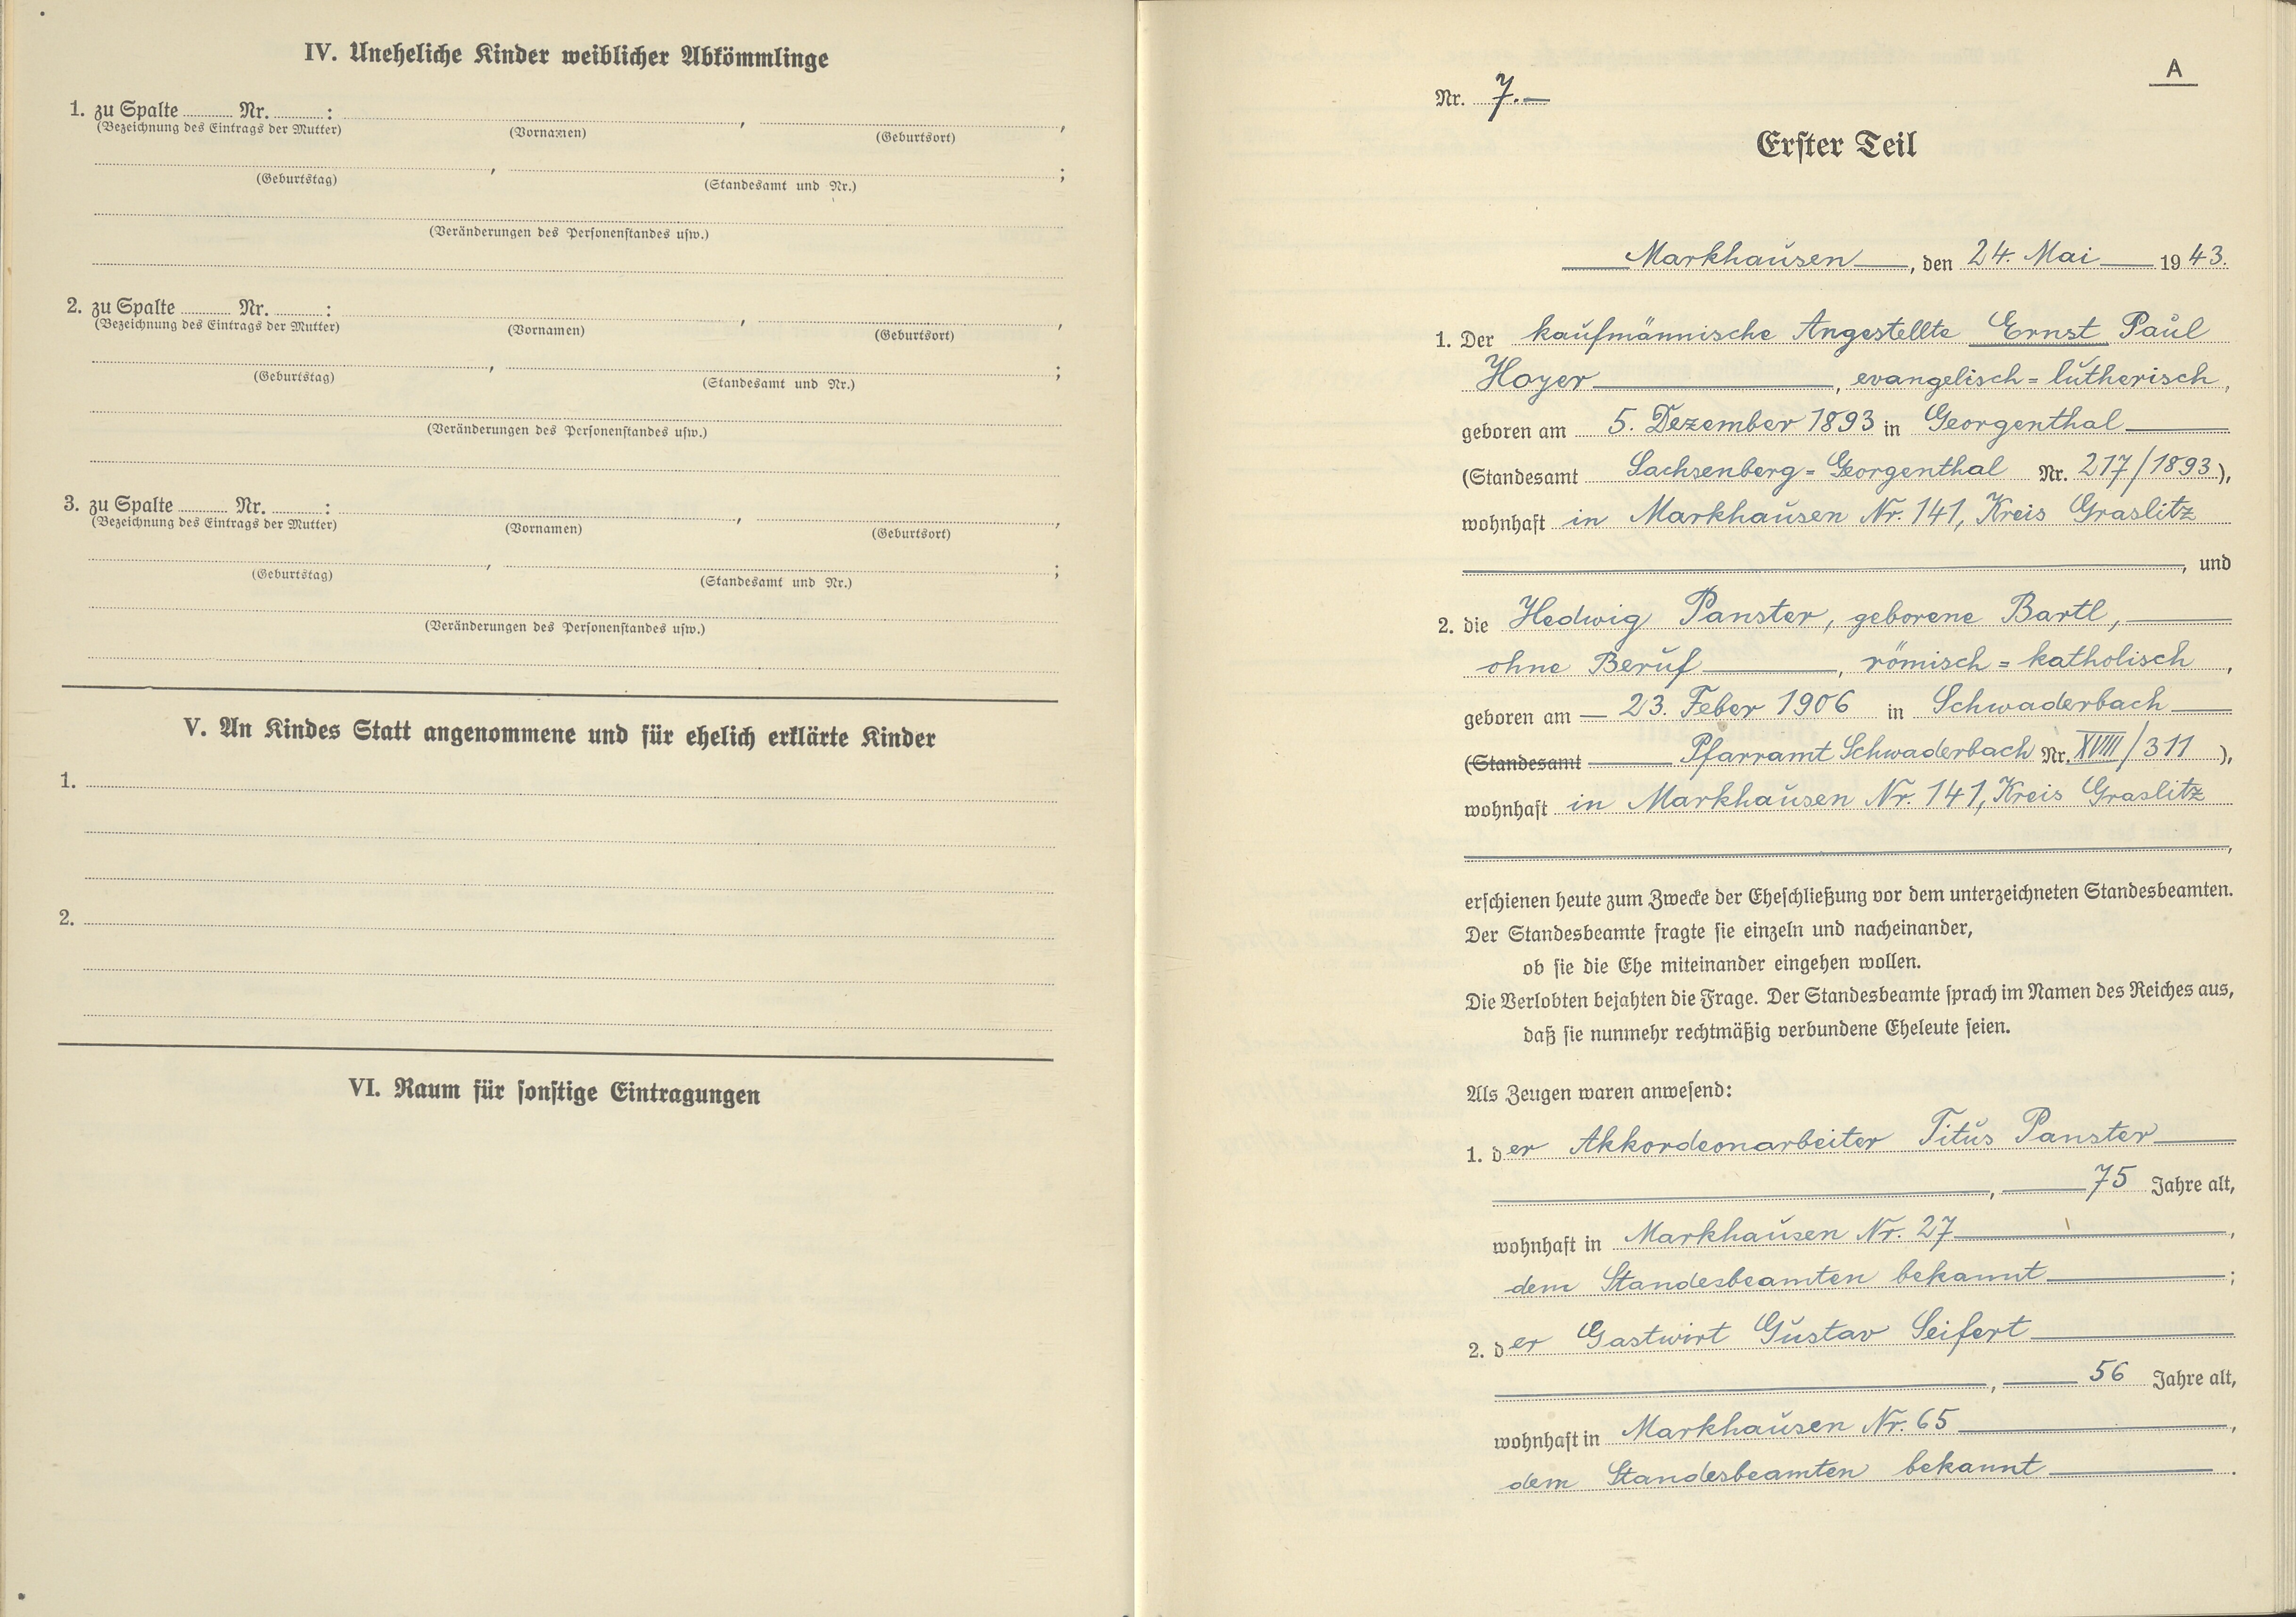 IV. Uneheliche Kinder weiblicher Abkömmlinge
1. zu Spalte ........ Nr. ........:
(Bezeichnung des Eintrags der Mutter) (Vornamen) , (Geburtsort) ,
(Geburtstag) , (Standesamt und Nr.) ;
(Veränderungen des Personenstandes usw.)
2. zu Spalte ........ Nr. ........:
(Bezeichnung des Eintrags der Mutter) (Vornamen) , (Geburtsort) ,
(Geburtstag) , (Standesamt und Nr.) ;
(Veränderungen des Personenstandes usw.)
3. zu Spalte ........ Nr. ........:
(Bezeichnung des Eintrags der Mutter) (Vornamen) , (Geburtsort) ,
(Geburtstag) , (Standesamt und Nr.) ;
(Veränderungen des Personenstandes usw.)
V. An Kindes Statt angenommene und für ehelich erklärte Kinder
1.
2.
VI. Raum für sonstige Eintragungen
A
Nr. 7.—
Erster Teil
Markhausen, den 24. Mai 1943.
1. Der kaufmännische Angestellte Ernst Paul
Hoyer, evangelisch=lutherisch,
geboren am 5. Dezember 1893 in Georgenthal
(Standesamt Sachsenberg=Georgenthal Nr. 217/1893),
wohnhaft in Markhausen Nr. 141, Kreis Graslitz
, und
2. die Hedwig Panster, geborene Bartl,
ohne Beruf, römisch=katholisch,
geboren am 23. Feber 1906 in Schwaderbach
(Standesamt Pfarramt Schwaderbach Nr. XVIII/311),
wohnhaft in Markhausen Nr. 141, Kreis Graslitz
,
erschienen heute zum Zwecke der Eheschließung vor dem unterzeichneten Standesbeamten.
Der Standesbeamte fragte sie einzeln und nacheinander,
ob sie die Ehe miteinander eingehen wollen.
Die Verlobten bejahten die Frage. Der Standesbeamte sprach im Namen des Reiches aus,
daß sie nunmehr rechtmäßig verbundene Eheleute seien.
Als Zeugen waren anwesend:
1. der Akkordeonarbeiter Titus Panster
, 75 Jahre alt,
wohnhaft in Markhausen Nr. 27,
dem Standesbeamten bekannt;
2. der Gastwirt Gustav Seifert
, 56 Jahre alt,
wohnhaft in Markhausen Nr. 65,
dem Standesbeamten bekannt.